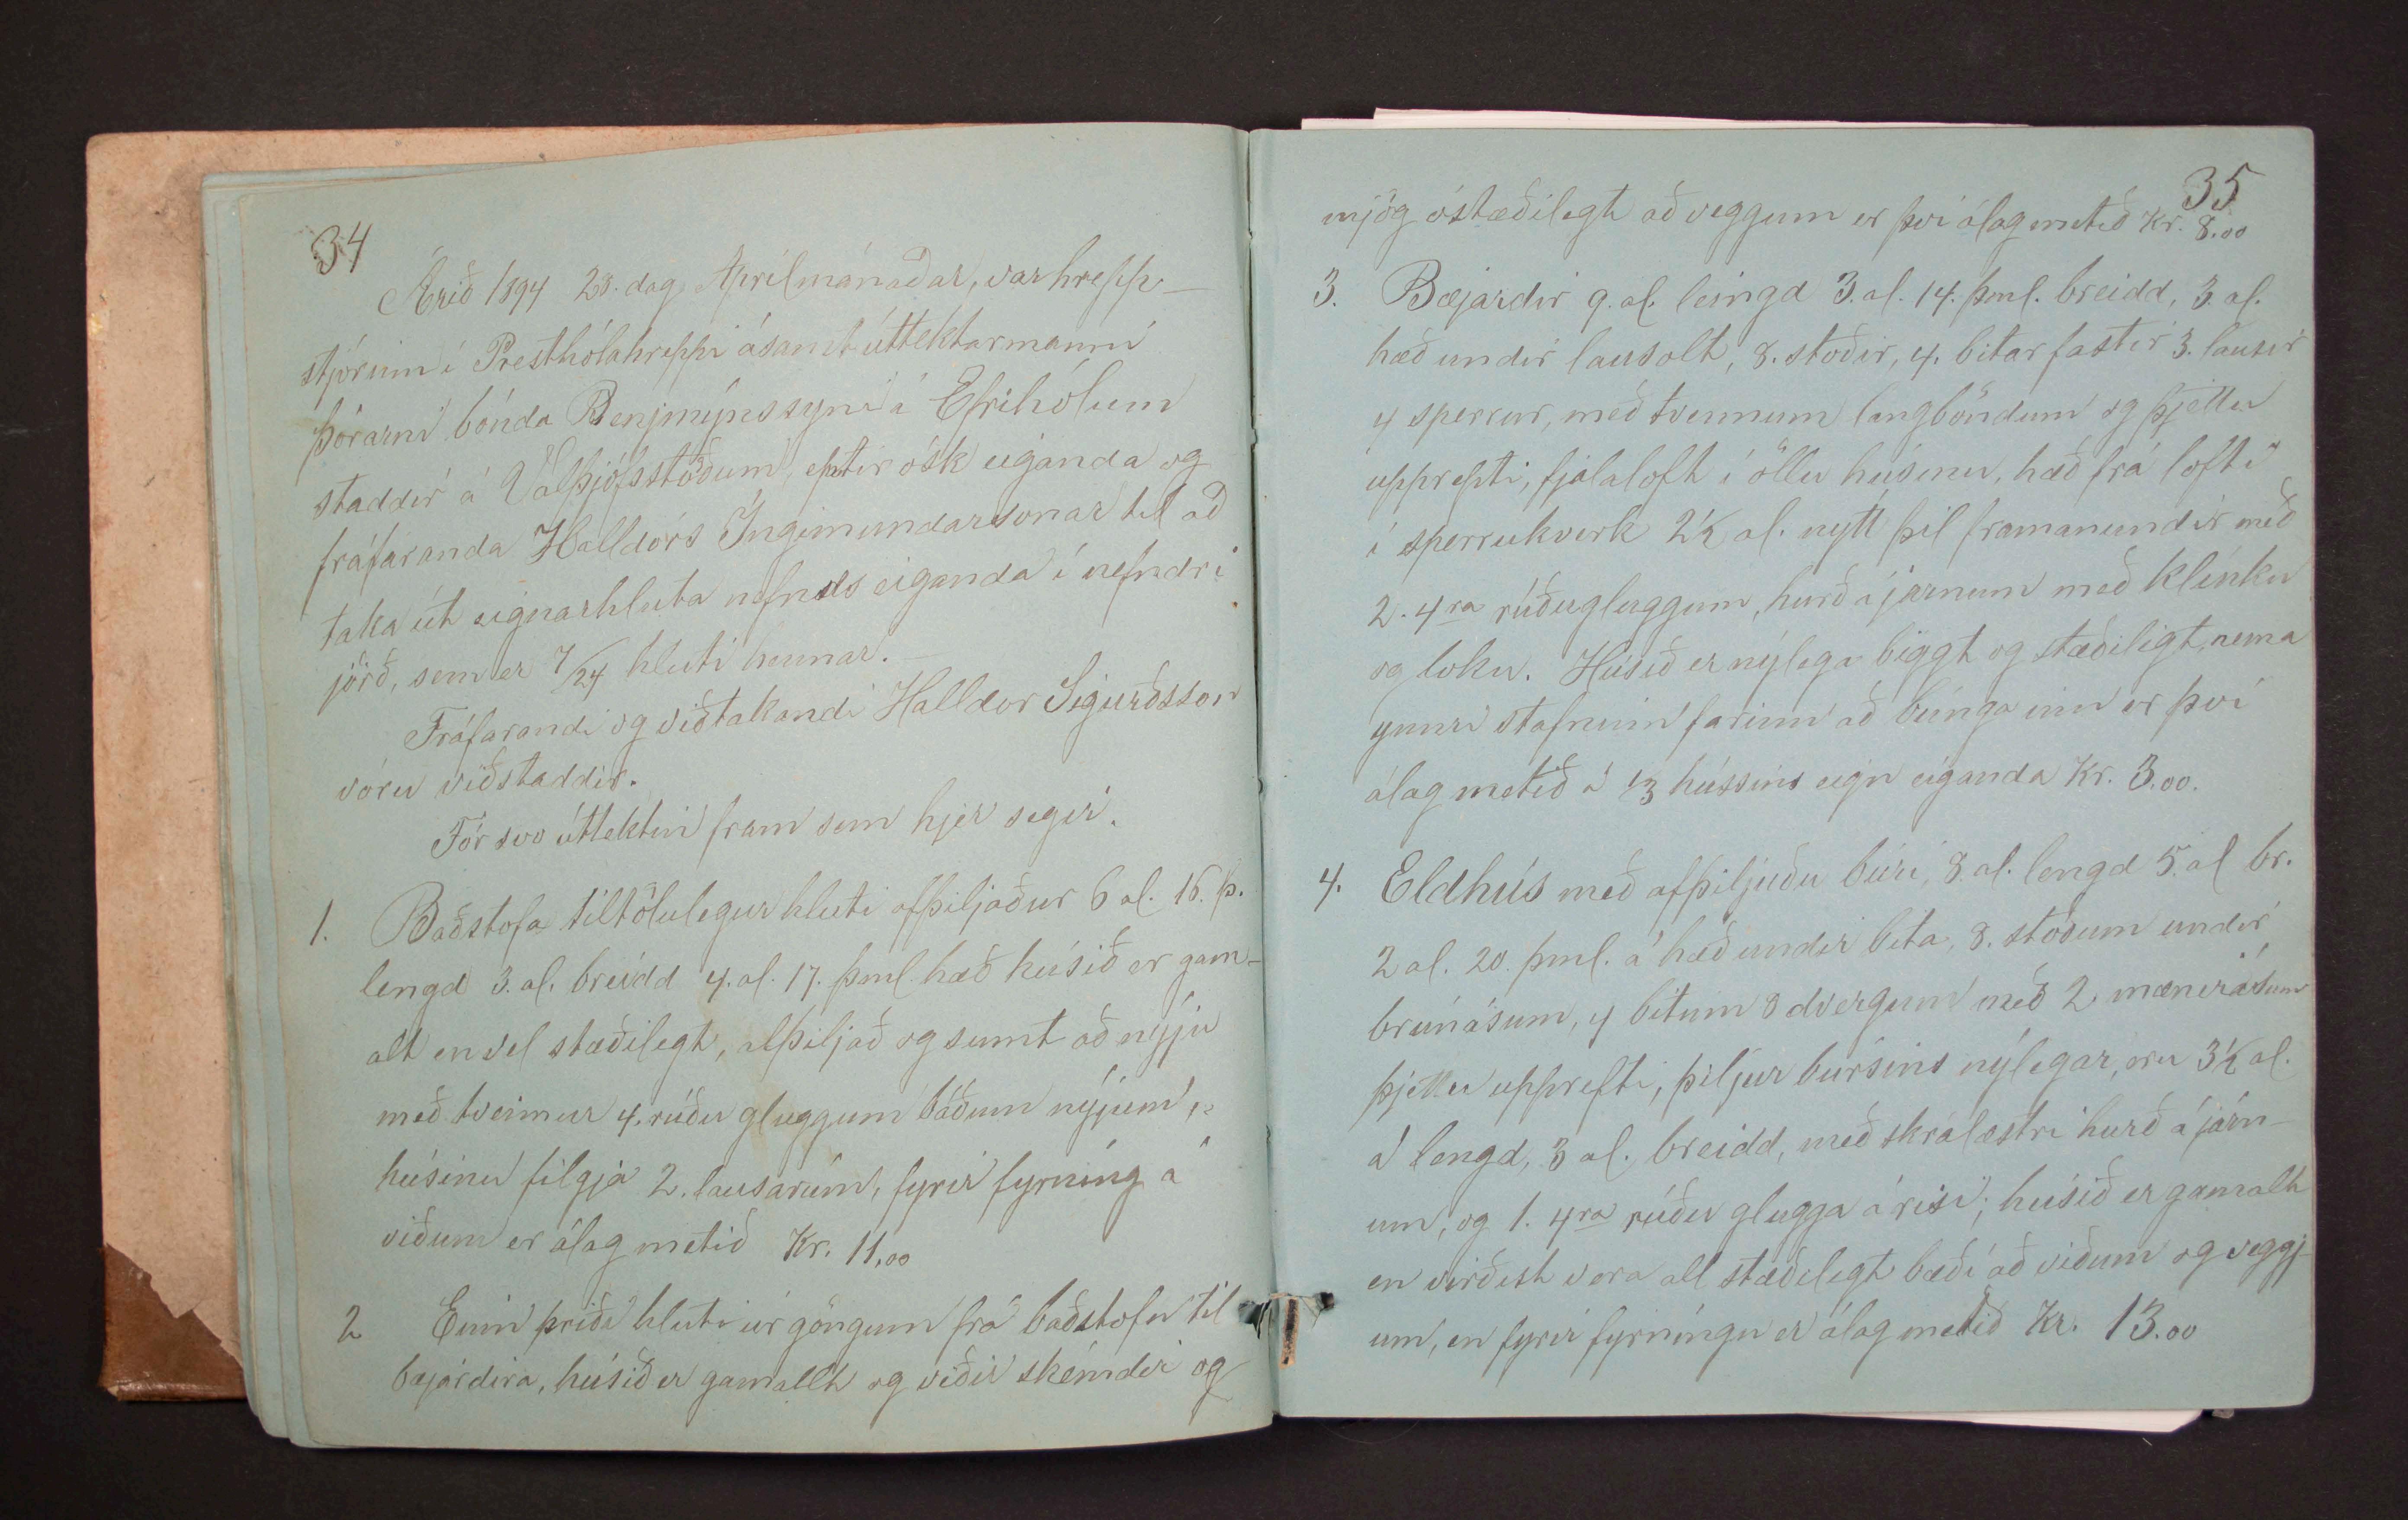 34
Árið 1894 28. dag Aprílmánaðar, var hrepp-
stjórinn í Presthólahreppi ásamt úttektarmanni
Þórarni bónda Benjmýnssyni á Efrihólum
staddir á Valþjófsstöðum, eptir ósk eiganda og
fráfaranda Halldórs Ingimundarsonar til að
taka út eignarhluta nefnds eiganda í nefndri
jörð, sem er 7/24 hluti hennar.
Fráfarandi og viðtakandi Halldor Sigurðsson
vóru viðstaddir.
Fór svo úttektin fram sem hjer segir.
1. Baðstofa tiltölulegur hluti afþiljaður 6 al. 16. þ.
lengd 3. al. breidd 4. al. 17. þml. hæð húsið er gam-
alt en vel stæðilegt, alþiljað og sumt að nýju
með tveimur 4. rúðu gluggum báðum nýjum,
húsinu filgja 2. lausarúm, fyrir fyrning á
viðum er álag metið Kr. 11,00
2 Einn þriði hluti úr göngum frá baðstofu til
bæjardira, húsið er gamallt og viðir skémdir og
35
mjög óstæðilegt að veggum er því álag metið Kr. 8.00
3. Bæjardir 9. al. leingd 3. al. 14. þml. breidd, 3. al.
hæð undir lausolt, 8. stoðir, 4. bitar fastir 3. lausir
4 sperrur, með tvennum langböndum og þjettu
upprepti, fjalaloft í öllu húsinu, hæð frá lofti
í sperrukverk 2½ al. nýtt þil framanundir með
2. 4ra rúðugluggum, hurð á járnum með klinku
og loku. Húsið er nýlega biggt og stæðiligt, nema
ynnri stafninn farinn að búnga inn er því
álag metið á 1/3 hússins eign eiganda Kr. 3.00.
4. Eldhús með afþiljuðu búri, 8. al. lengd 5. al br.
2 al. 20. þml. á hæð undir bita, 8. stöðum undir
brúnásum, 4 bitum 8 dvergum með 2 mænirásum
þjettu upprefti, þiljur búrsins nýlegar, eru 3½ al.
á lengd, 3 al. breidd, með skrálæstri hurð á járn-
um, og 1. 4ra rúðu glugga á risi; húsið er gamallt
en virðist vera all stæðilegt bæði að viðum og veggj-
um, en fyrir fyrningu er álag metið Kr. 13.00